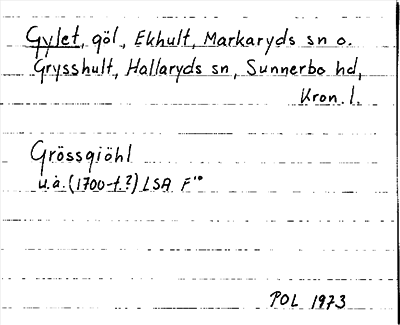 Gylet, göl, Ekhult, Markaryds sn o.
Grysshult, Hallaryds sn, Sunnerbo hd,
Kron. l.
Grössgiöhl
u.å. (1700-t.?) LSA F10
POL 1973